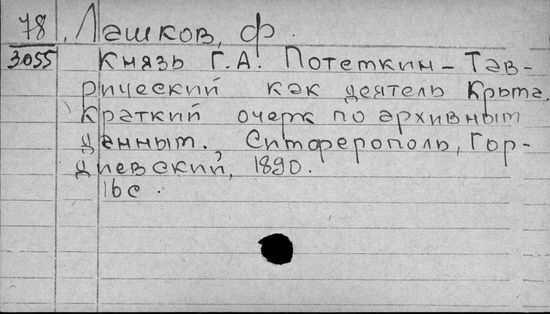 78 Лашков, Ф.
3055 Князь Г.А. Потемкин-Тав-
рический как деятель Крыма.
Краткий очерк по архивным
данным. Симферополь, Гор-
диевский, 1890.
16 с.